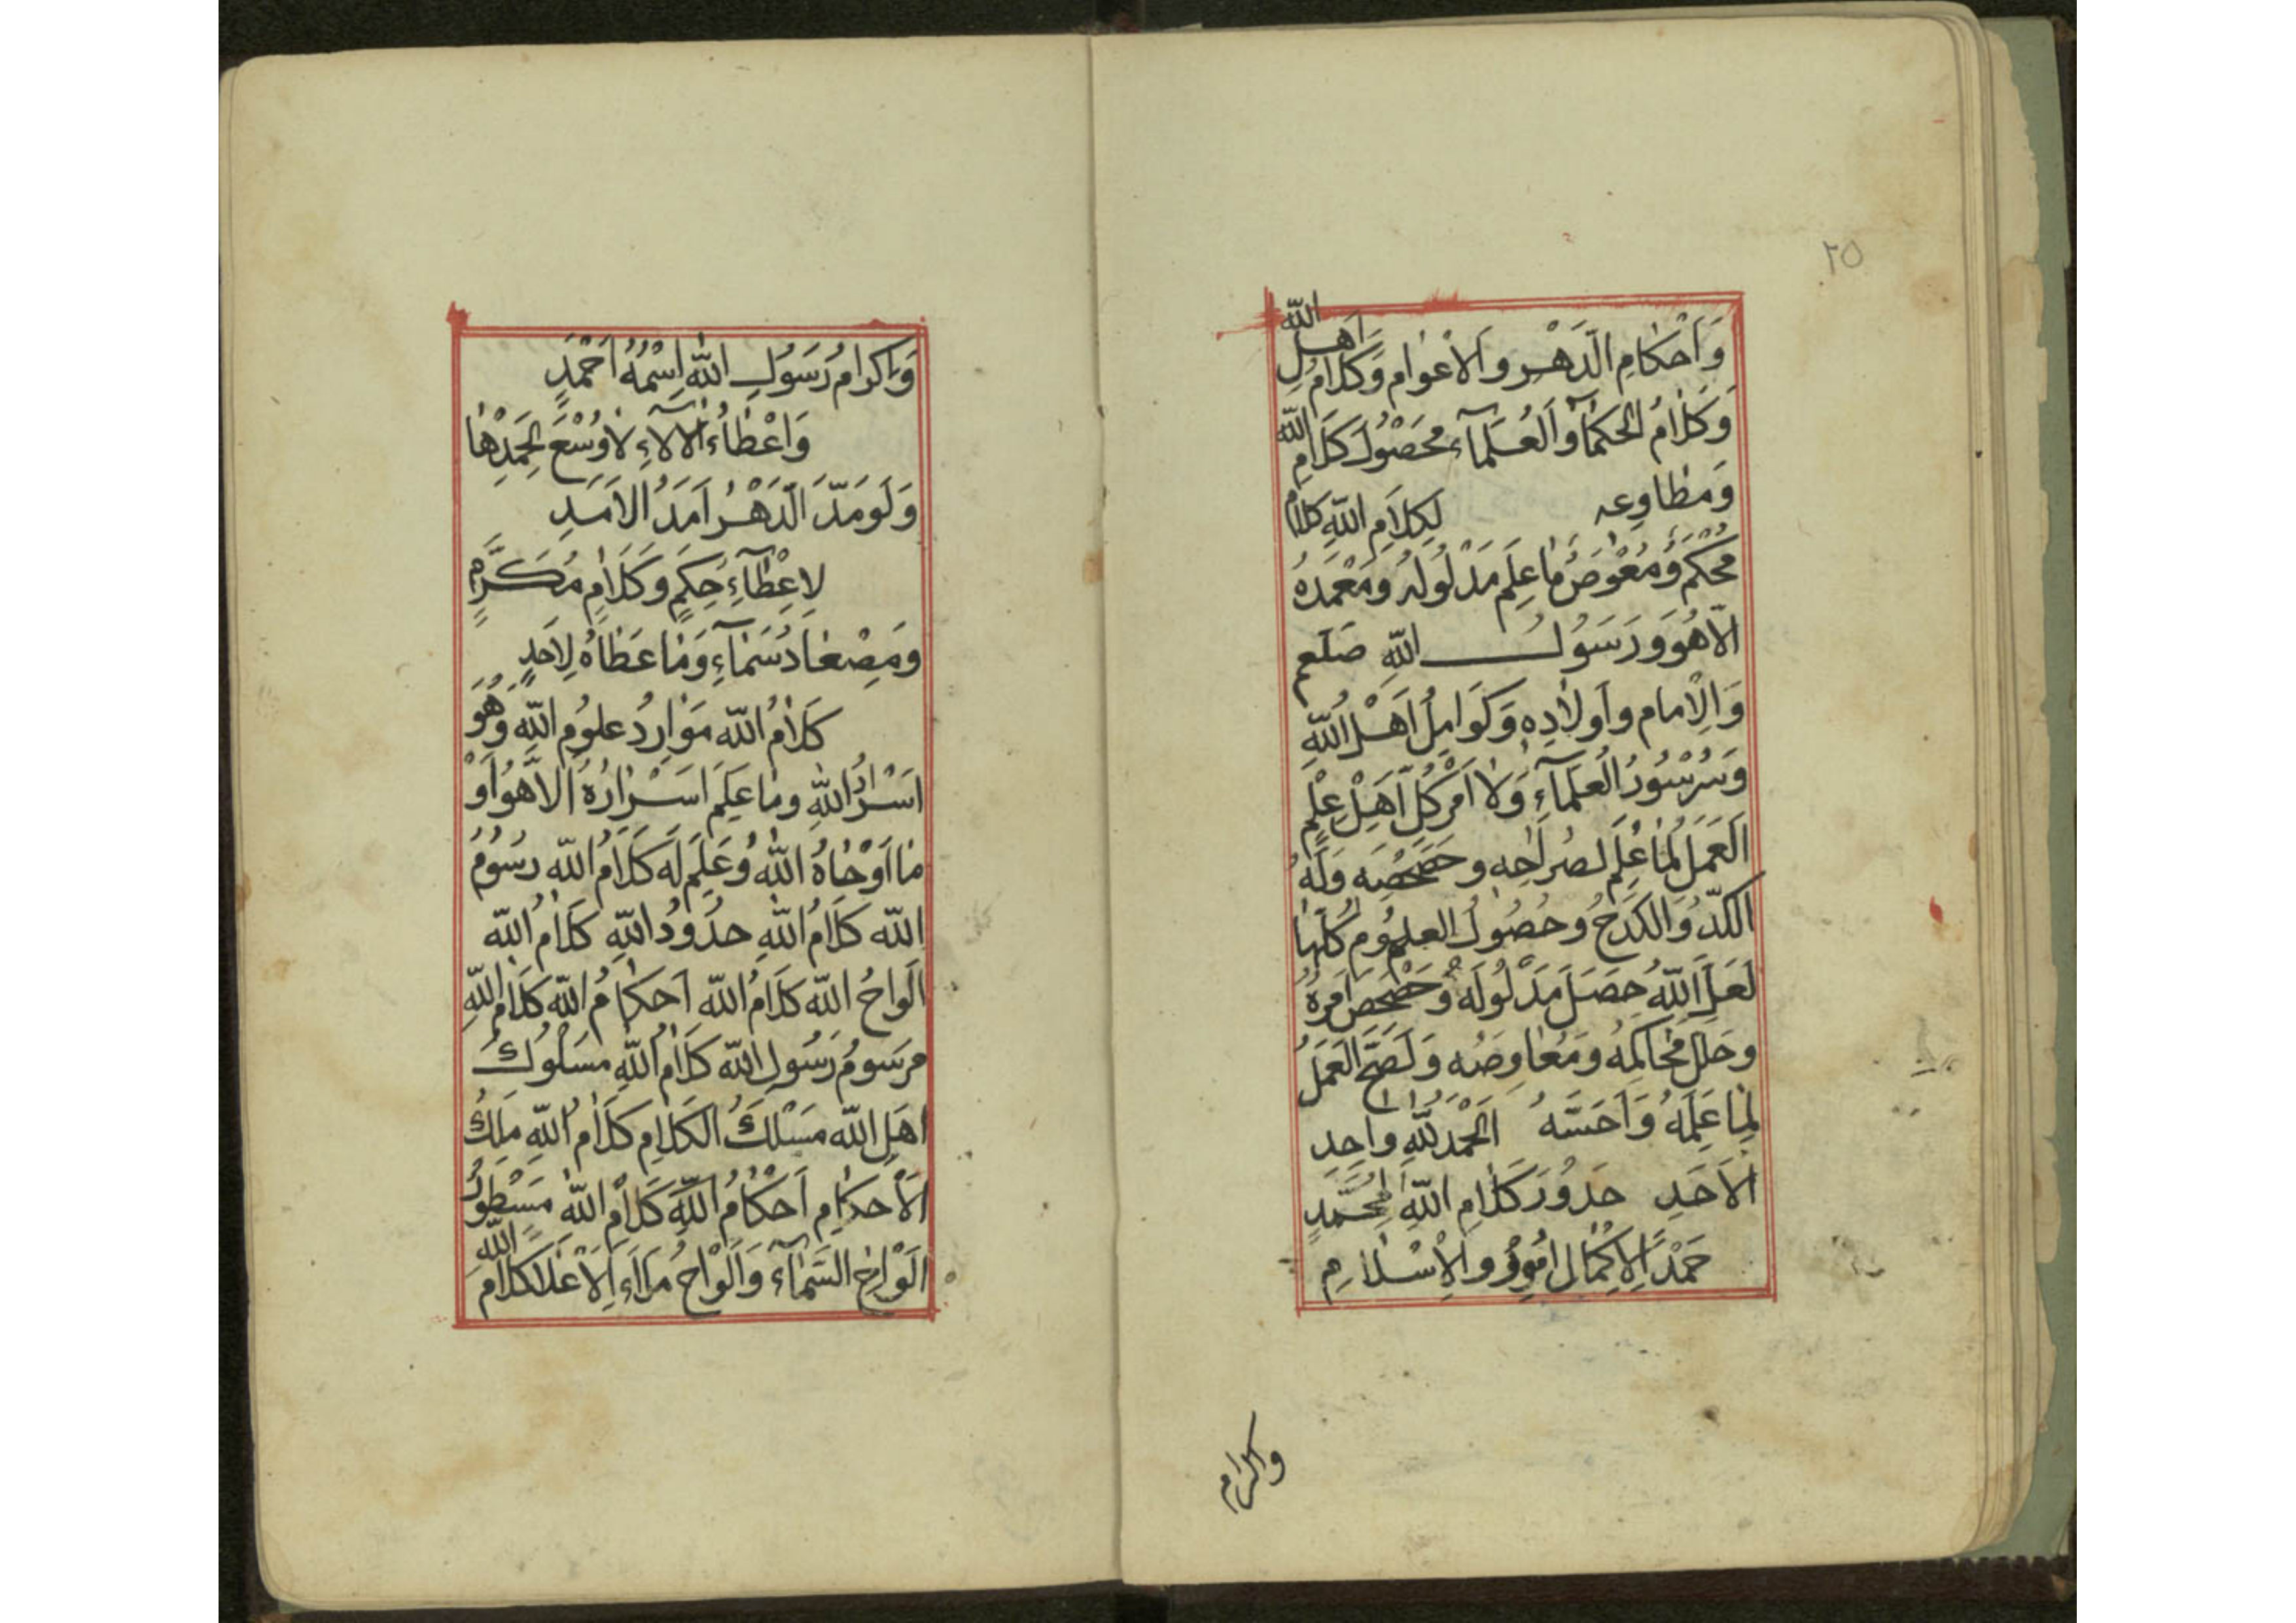 ٢٥
وَاَحْكَامِ الدَّهْرِ والاَعْوَامِ وَكَلَامُ اَهْلِ اللّٰه
وَكَلَامُ الحُكَمَآ وَالْعُلَمَآءِ مَحْصُولُ كَلَامِ اللّٰه
وَمطَاوِعه لِكَلَامِ اللّٰهِ كَلَامٌ
مُحْكَمٌ وَمُعْوَصٌ مَا عَلِمَ مَدْلُولَه وَمَعْمَدَهُ
اِلّا هُوَ وَرَسُولُ اللّٰهِ صَلعم
وَالْاِمَام وَاَولَادِه وَكَوَامِلُ اَهْلِ اللّٰهِ
الْعُلَمَآءِ وَلَا اَمْر كُلِّ اَهْلِ عِلْمٍ
العَمَلُ لِمَا عُلِمَ لصُراحِه وحَصْحَصِه وَلَهُ
الكَدُّ وَالكَدْحُ وحُصُولُ العلُومِ كُلّهَا
لَعَلَّ اللّٰهُ حَصَلَ مَدْلُولَهُ وَحَصْحَصَ اَمرهُ
وحَلَّ مَحَاكِمهُ وَمَعَاوِصُه وَلَصَحَّ العَمَلُ
لِمَا عَلِمَهُ وَاَحَسَّهُ اَلْحَمْدُ لِلّٰهِ واحِد
الاَحَدِ حَدُورَ كَلَامِ اللّٰهِ لِمُحَمَّدٍ
حَمْدًا لِاِكْمَالِ اُمُورِ والْاِسْلَامِ
واكرام
وَاِكرامُ رَسُولِ اللّٰهِ اِسْمُهُ اَحْمَدِ
وَاِعْطَاءُ الاَلآءِ لَا وُسْعَ لِحَمْدِهَا
وَلَو مَدَّ الدَّهْرُ اَمَدَ الاَمَدِ
لِاِعْطَآءِ حِكَمٍ وَكَلَامٍ مُكَرَّمٍ
وَمِصْعَادُ سَمَآءٍ وَمَا عَطَاهُ لِاَحَدٍ
كَلَامُ اللّٰه مَوَارِدُ علُومِ اللّٰهِ وَهُوَ
اَسْرَارُ اللّٰهِ وما عَلِمَ اَسْرَارَهُ اِلَّا هُوَ اَوْ
مَا اَوْحَاهُ اللّٰهُ وَعَلِمَ لَه كَلَامُ اللّٰه رسُومُ
اللّٰه كَلَامُ اللّٰهِ حدُودُ اللّٰهِ كَلَامُ اللّٰه
اَلْوَاحُ اللّٰه كَلَامُ اللّٰه اَحكَامُ اللّٰه كَلَامُ اللّٰه
مرسَومُ رَسُولِ اللّٰه كَلَامُ اللّٰهِ مسلُوكُ
اَهلِ اللّٰه مَسْلَكُ الكَلَامِ كَلَامُ اللّٰهِ مَلِكُ
الاَحكَامِ اَحْكَامُ اللّٰهِ كَلَامُ اللّٰهِ مَسْطُورُ
اَلْوَاحِ السَّمَآءِ وَاَلْوَاحُ مَلاءِ الْاَعْلَا كَلَامُ اللّٰه